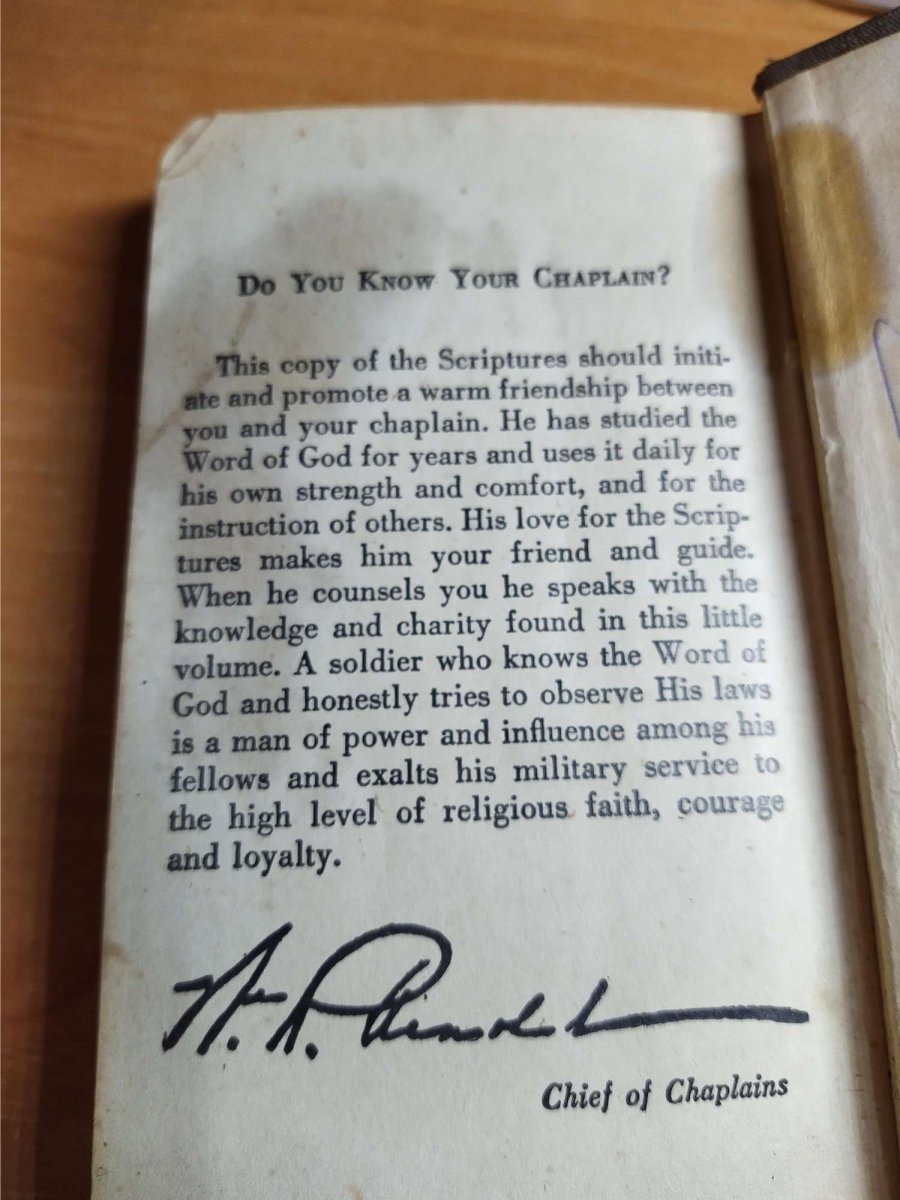 Do You Know Your Chaplain?
This copy of the Scriptures should initi-
ate and promote a warm friendship between
you and your chaplain. He has studied the
Word of God for years and uses it daily for
his own strength and comfort, and for the
instruction of others. His love for the Scrip-
tures makes him your friend and guide.
When he counsels you he speaks with the
knowledge and charity found in this little
volume. A soldier who knows the Word of
God and honestly tries to observe His laws
is a man of power and influence among his
fellows and exalts his military service to
the high level of religious faith, courage
and loyalty.
Wm. R. Arnold
Chief of Chaplains